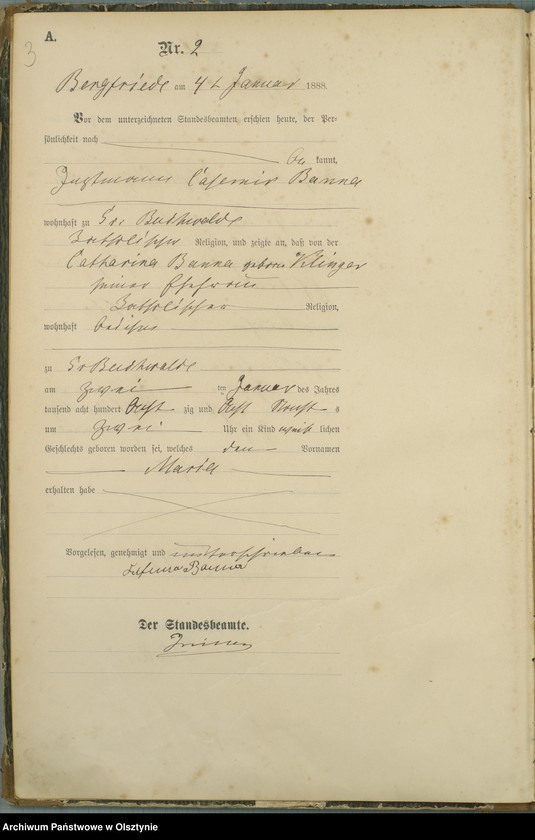 3
A.
Nr. 2
Bergfriede am 4 t Januar 1888.
Vor dem unterzeichneten Standesbeamten erschien heute, der Per-
sönlichkeit nach
be kannt,
Casemir Banna
wohnhaft zu Gr. Buchwalde
katholischer Religion, und zeigte an, daß von der
Catharina Banna geborne Klinger
seiner Ehefrau
katholischer Religion,
wohnhaft bei ihm
zu Gr Buchwalde
am zwei ten Januar des Jahres
tausend acht hundert Acht zig und Acht Nachmit s
um zwei Uhr ein Kind weib lichen
Geschlechts geboren worden sei, welches den Vornamen
Maria
erhalten habe
Vorgelesen, genehmigt und unterschrieben
Banna
Der Standesbeamte.
Archiwum Państwowe w Olsztynie